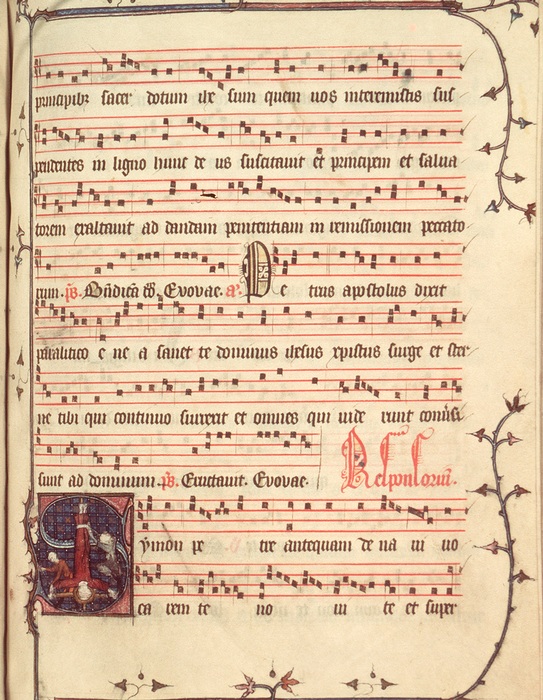 principibz sacer dotum ihc sum quem uos interemistis sus
pendentes in ligno hunc de us suscitauit et principem et salua
torem exaltauit ad dandam penitentiam in remissionem peccato
rum. ps. Evovae. a. P e trus apostolus dixit
paralitico e ne a sanet te dominus ihesus xpistus surge et ster
ne tibi qui continuo surrexit et omnes qui uide runt
sunt ad dominum. ps. Eructauit. Evovae. Responsorium.
S ymon pe tre antequam de na ui uo
ca rem te no ui te et super